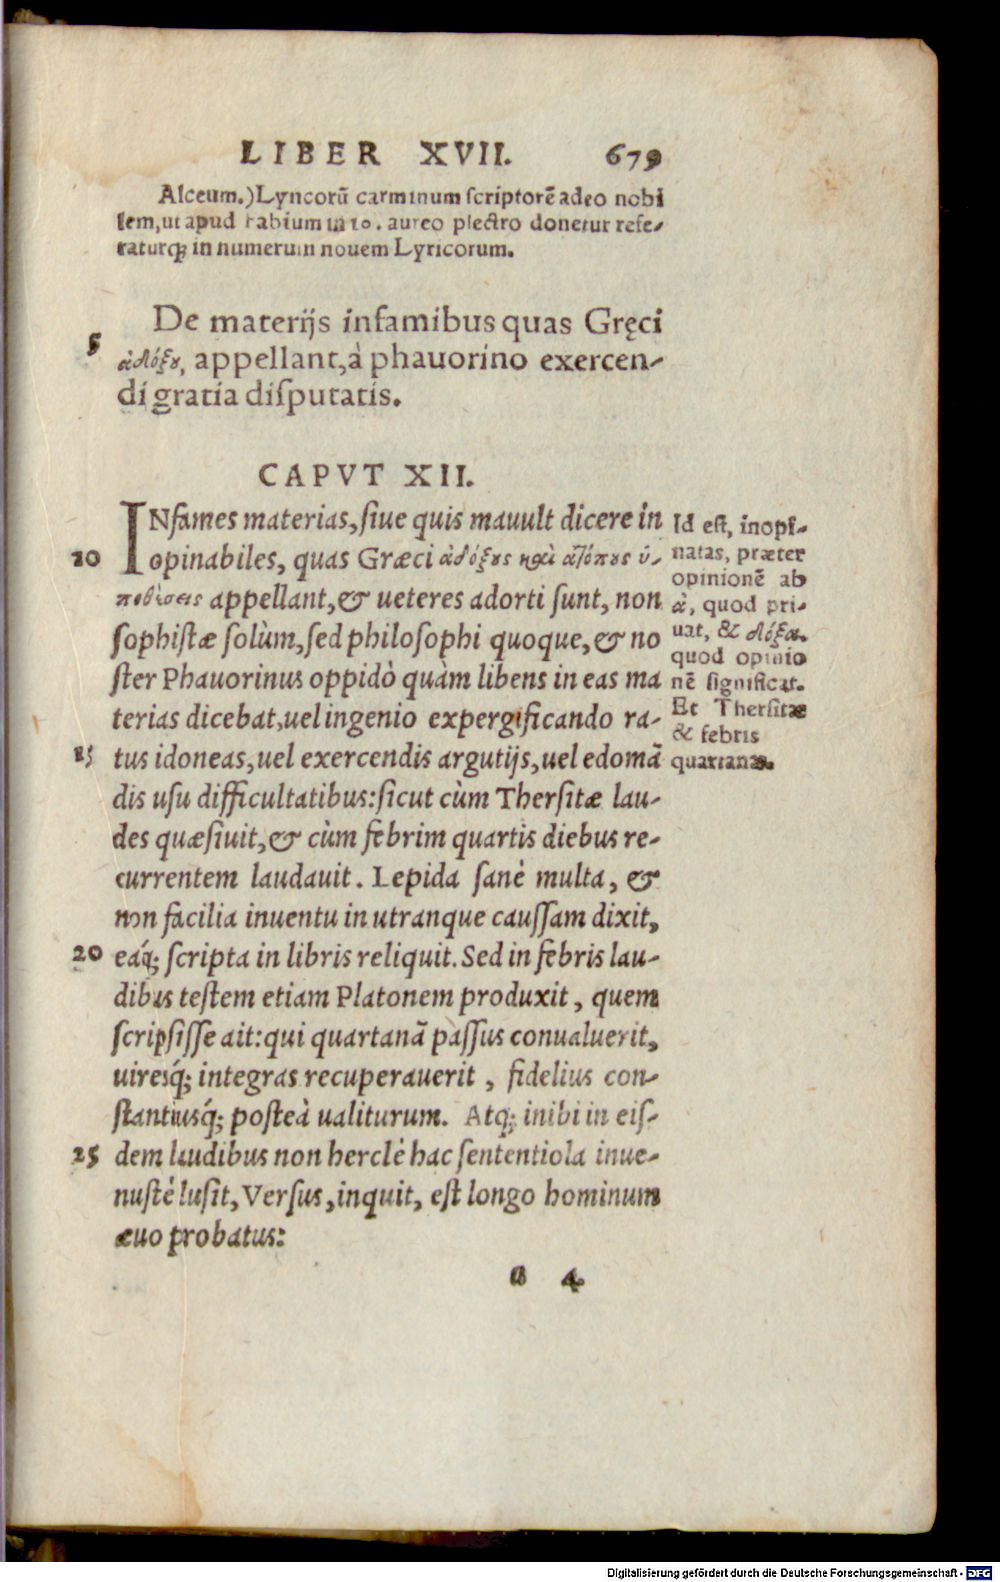 LIBER XVII. 679
Alceum.) Lyncorũ carminum scriptorẽ adeo nobi
lem, ut apud Fabium in 10. aureo plectro donetur refe-
raturq; in numerum nouem Lyricorum.
De materijs infamibus quas Gręci
5
ἀδόξου, appellant, à phauorino exercen-
di gratia disputatis.
CAPVT XII.
INfames materias, siue quis mauult dicere in
10 opinabiles, quas Græci ἀδόξους καὶ ἀτόπους ὑ-
ποθέσεις appellant, & ueteres adorti sunt, non
sophistæ solùm, sed philosophi quoque, & no
ster Phauorinus oppidò quàm libens in eas ma
terias dicebat, uel ingenio expergificando ra-
15 tus idoneas, uel exercendis argutijs, uel edomã
dis usu difficultatibus: sicut cùm Thersitæ lau-
des quæsiuit, & cùm febrim quartis diebus re-
currentem laudauit. Lepida sanè multa, &
non facilia inuentu in utranque caussam dixit,
20 eaq; scripta in libris reliquit. Sed in febris lau-
dibus testem etiam Platonem produxit, quem
scripsisse ait: qui quartanã passus conualuerit,
uiresq; integras recuperauerit, fidelius con-
stantiusq; posteà ualiturum. Atq; inibi in eis-
25 dem laudibus non herclè hac sententiola inue-
nustè lusit, Versus, inquit, est longo hominum
æuo probatus:
a 4
Id est, inopi-
natas, præter
opinionẽ ab
ἀ, quod pri-
uat, & δόξα.
quod opinio
nẽ significat.
Et Thersitæ
& febris
quartanæ.
Digitalisierung gefördert durch die Deutsche Forschungsgemeinschaft - DFG